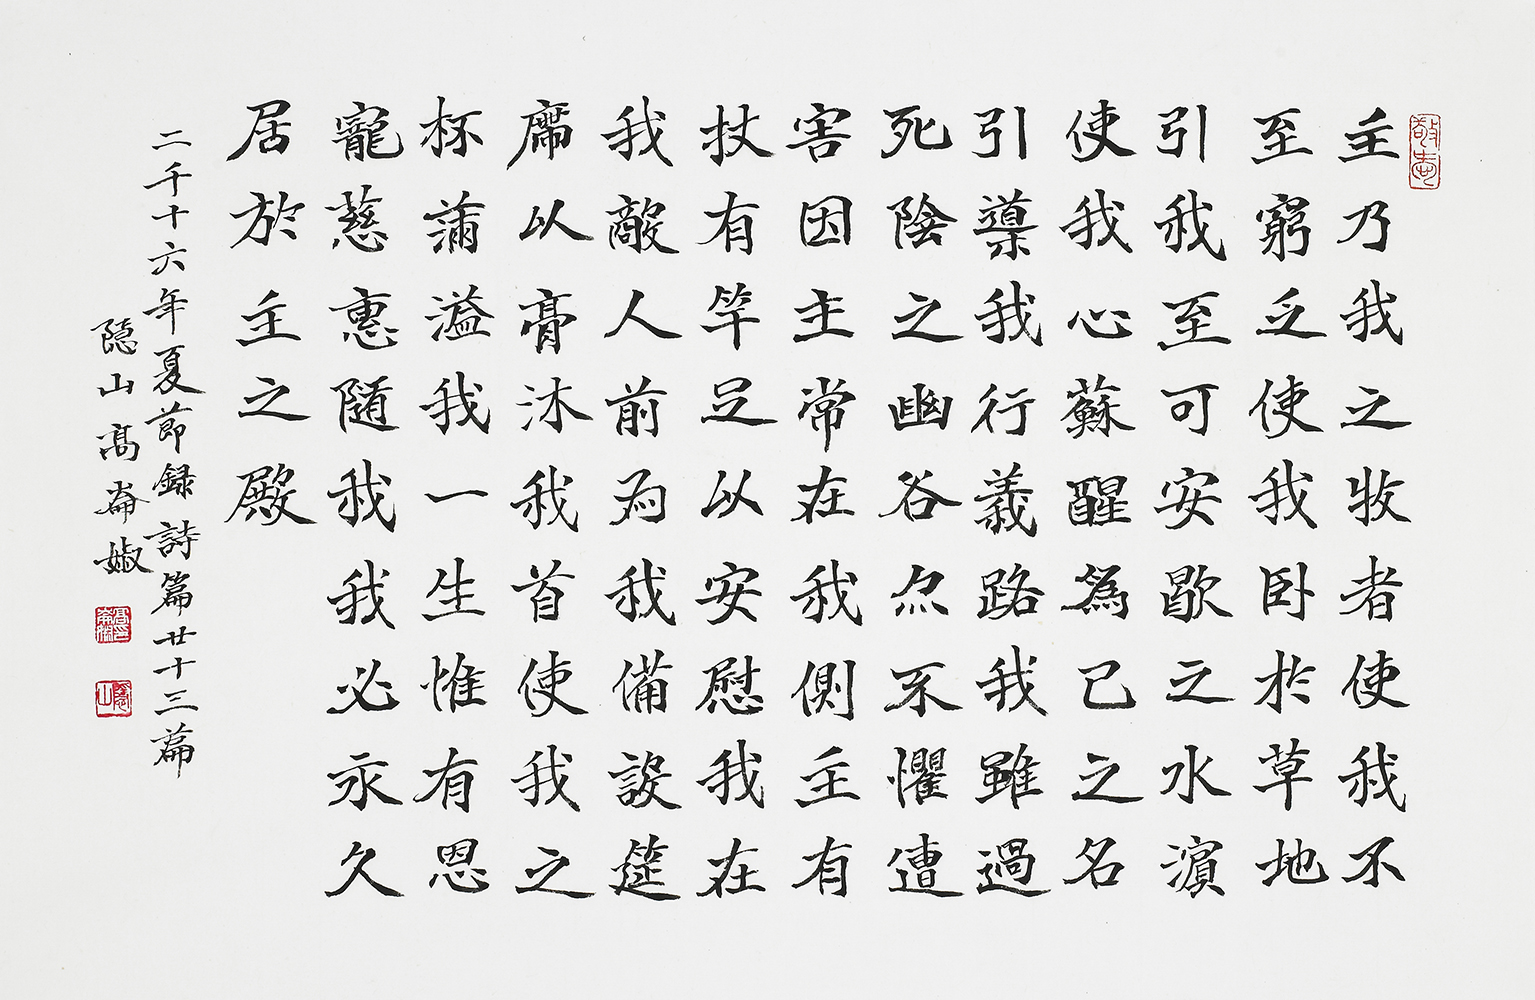 主乃我之牧者使我不
至窮乏使我卧於草地
引我至可安歇之水濱
使我心蘇醒為己之名
引導我行義路我雖過
死陰之幽谷尒不懼遭
害因主常在我側主有
杖有竿足以安慰我在
我敵人前為我備設筵
席以膏沐我首使我之
杯蒲溢我一生惟有恩
寵慈惠隨我我必永久
居於主之殿
二千十六年夏節録詩篇廿十三篇
隱山高崙娰